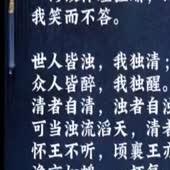 我笑而不答。
世人皆浊，我独清；
众人皆醉，我独醒。
清者自清，浊者自浊
可当浊流滔天，清者
怀王不听，顷襄王亦